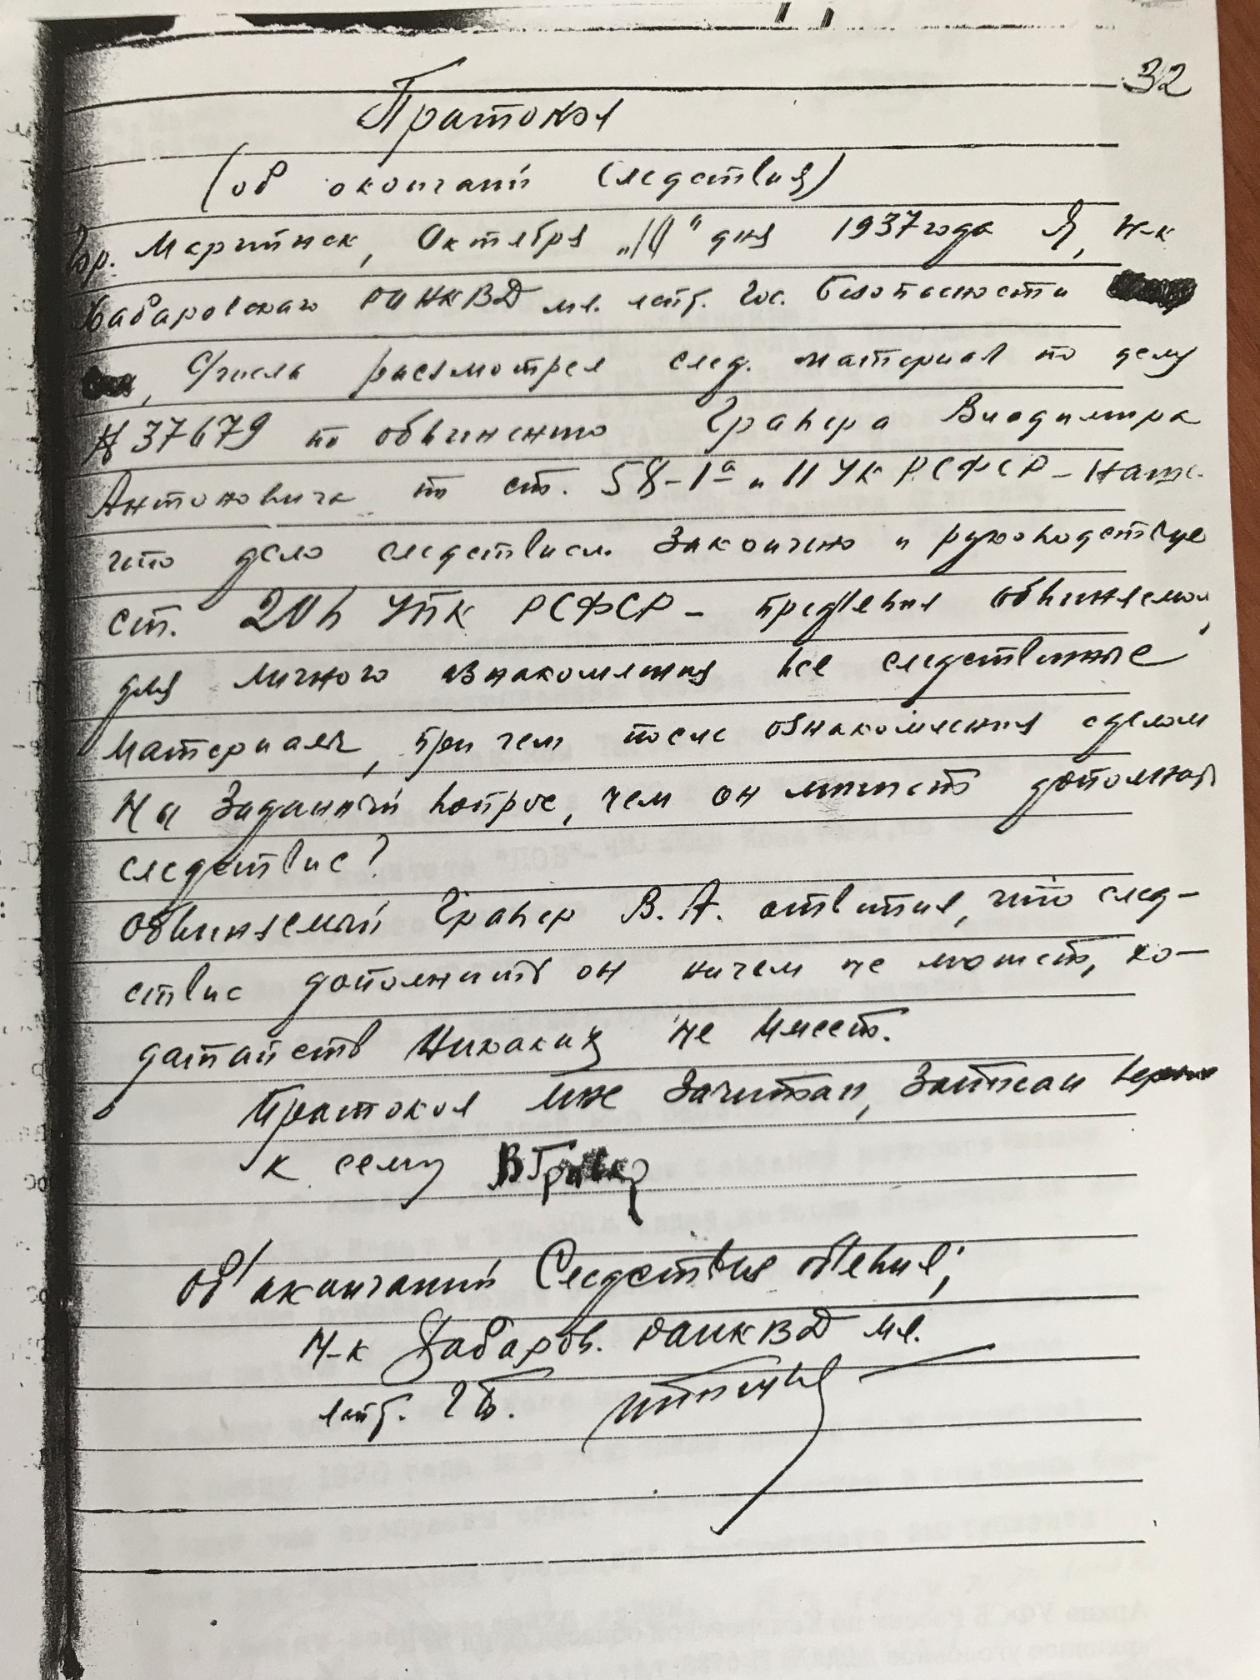 32
Пратокол
(об окончаний следствия)
гор. Мариинск, Октября „10" дня 1937 года Я, Н-к
Хабаровского РОНКВД мл. лейт. Гос. безопасности
, Сего числа рассмотрел след. материал по делу
№ 37679 по обвинению Гравера Владимира
Антоновича по ст. 58-1а и 11 УК РСФСР – Наш.
что дело следствием Закончено и руководствуе
ст. 206 УПК РСФСР – предъявил обвиняемом,
для личного ознакомления все следственные
материалы, при чем после ознакомления с делом
На Заданный вопрос, чем он может дополнить
следствие?
обвиняемый Гравер В. А. ответил, что след-
ствие дополнить он ничем не может, хо-
датайств Никаких не имеет.
Пратокол мне Зачитан, Записан верно
к сему ВГравер
об' акончаний Следствия объявил;
Н-к Хабаров. РОНКВД мл.
лейт. ГБ.